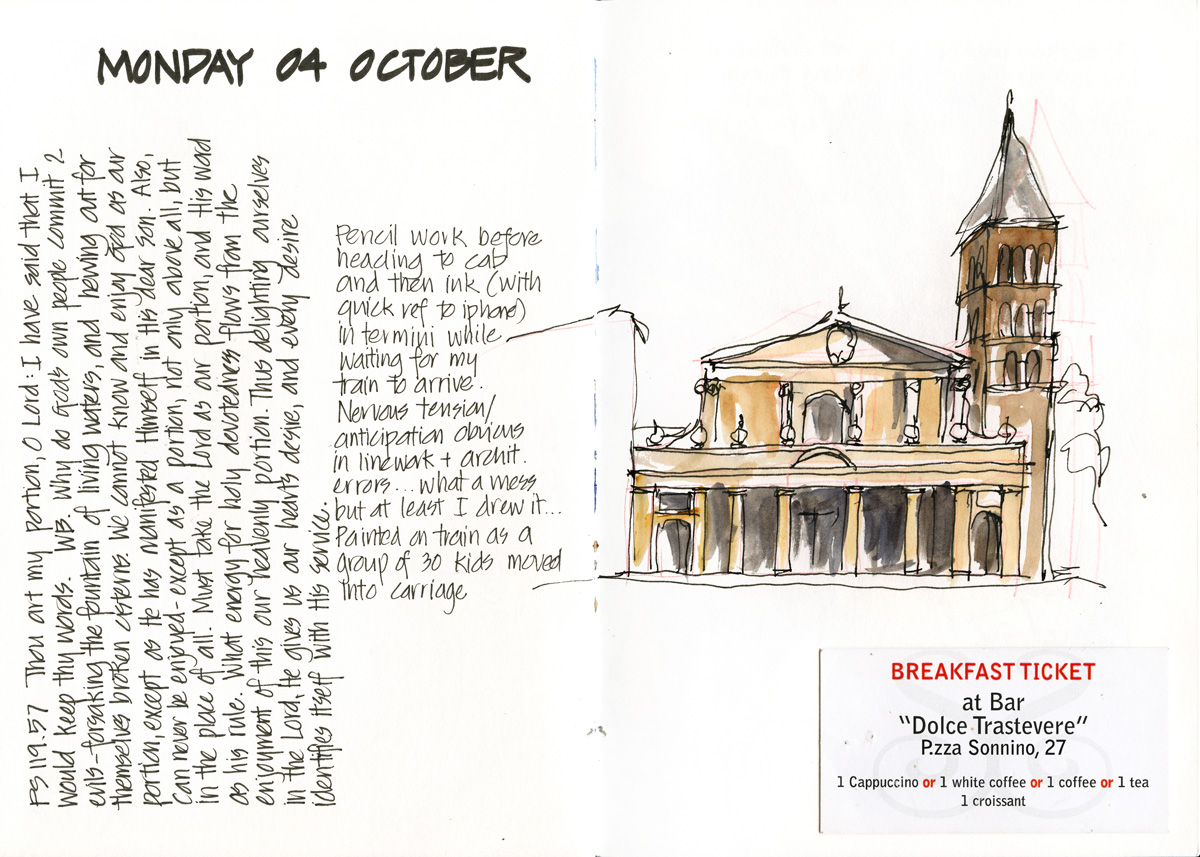 MONDAY 04 OCTOBER
PS 119.57 Thou art my portion, O Lord: I have said that I
would keep thy words. WB. Why do Gods own people commit 2
evils - forsaking the fountain of living waters, and hewing out for
themselves broken cisterns. We cannot know and enjoy God as our
portion, except as He has manifested Himself in His dear son. Also,
can never be enjoyed - except as a portion, not only above all, but
in the place of all. Must take the Lord as our portion, and His word
as his rule. What energy for holy devotedness flows from the
enjoyment of this our heavenly portion. Thus delighting ourselves
in the Lord, He gives us our hearts desire, and every desire
identifies itself with His service.
Pencil work before
heading to cab
and then ink (with
quick ref to iphone)
in termini while
waiting for my
train to arrive.
Nervous tension/
anticipation obvious
in linework + archit.
errors... what a mess
but at least I drew it...
Painted on train as a
group of 30 kids moved
into carriage
BREAKFAST TICKET
at Bar
“Dolce Trastevere”
P.zza Sonnino, 27
1 Cappuccino or 1 white coffee or 1 coffee or 1 tea
1 croissant